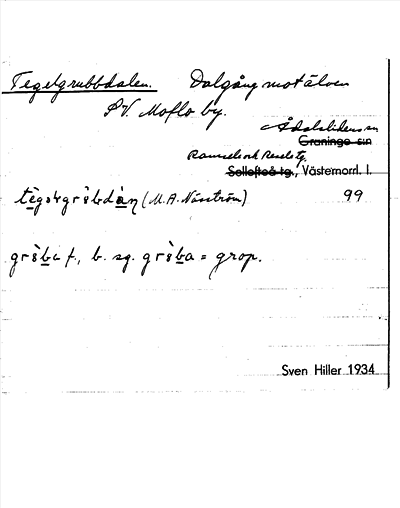 Tegelgrubbdalen. Dalgång mot älven
S.V. Moflo by.
Ådalslidens sn
Graninge sn
Ramsele och Resele tg.
Sollefteå tg., Västernorrl. l.
(M.A. Näsström) 99
f., b. sg. = grop.
Sven Hiller 1934